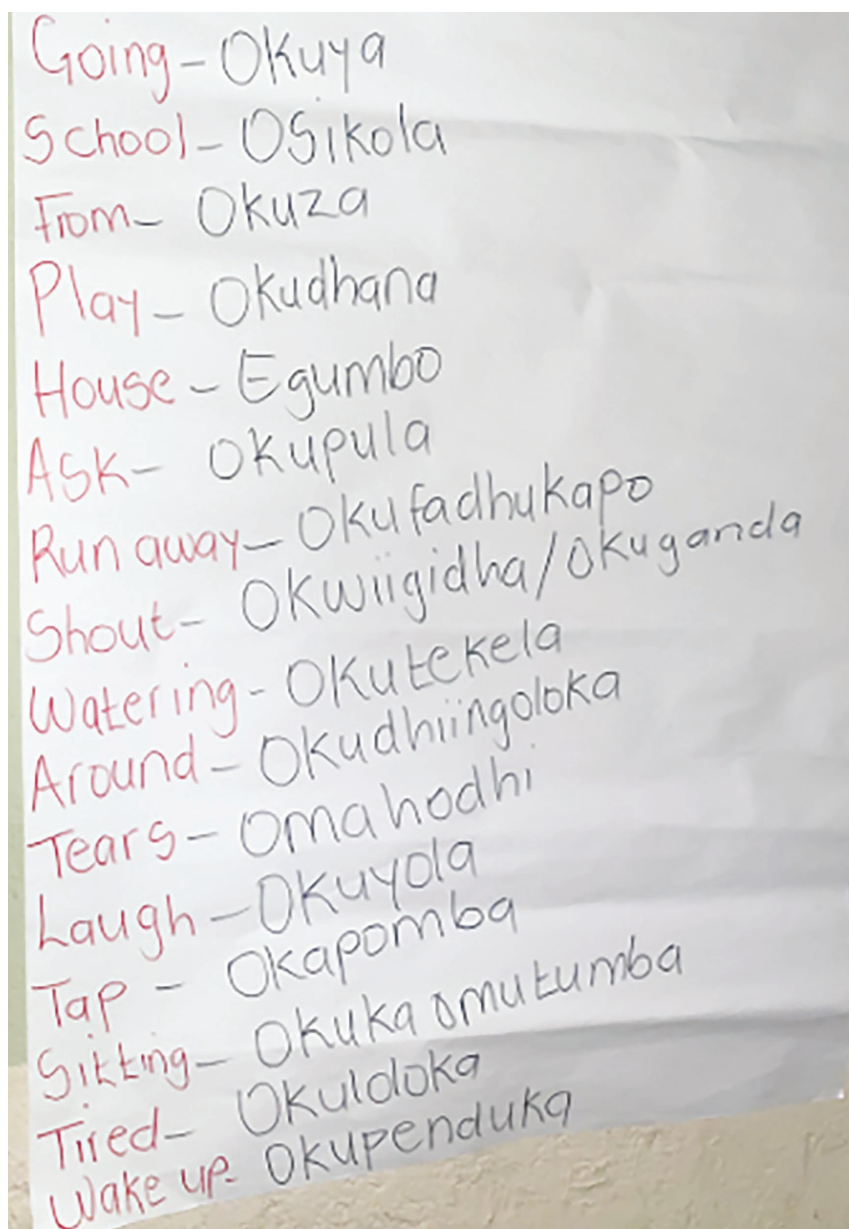 Going - Okuya
School - Osikola
From - Okuza
Play - Okudhana
House - Egumbo
Ask - Okupula
Run away - Okufadhukapo
Shout - Okwiigidha/Okuganda
Watering - Okutekela
Around - Okudhiingoloka
Tears - Omahodhi
Laugh - Okuyola
Tap - Okapomba
Sitting - Okuka omutumba
Tired - Okuloloka
Wake up - Okupenduka